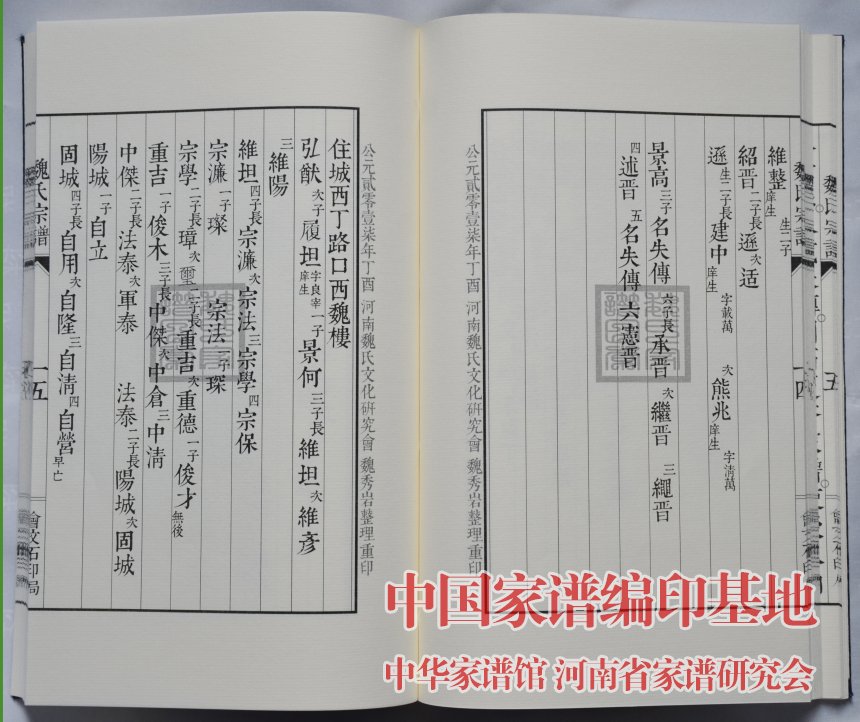 魏氏宗譜
五
維整庠生 生二子
紹晋二子長遜次适
遜生二子長建中庠生 字載萬 次熊兆庠生 字淸萬
景高三子名失傳 六子長承晋次繼晋三繩晋
四述晋五名失傳六憲晋
公元貳零壹柒年丁酉 河南魏氏文化研究會 魏秀岩整理重印
公元貳零壹柒年丁酉 河南魏氏文化研究會 魏秀岩整理重印
住城西丁路口西魏樓
弘猷次子履坦字良宰 庠生一子景何三子長維坦次維彥
三維陽
維坦四子長宗濂次宗法三宗學四宗保
宗濂一子璨 宗法一子琛
宗學二子長璋次璽 二子長重吉次重德一子俊才無後
重吉一子俊木三子長中傑次中倉三中淸
中傑二子長法泰次軍泰 法泰二子長陽城次固城
陽城一子自立
固城四子長自用次自隆三自淸四自營早亡
魏氏宗譜
一五
會文石印局
中国家谱编印基地
中华家谱馆 河南省家谱研究会